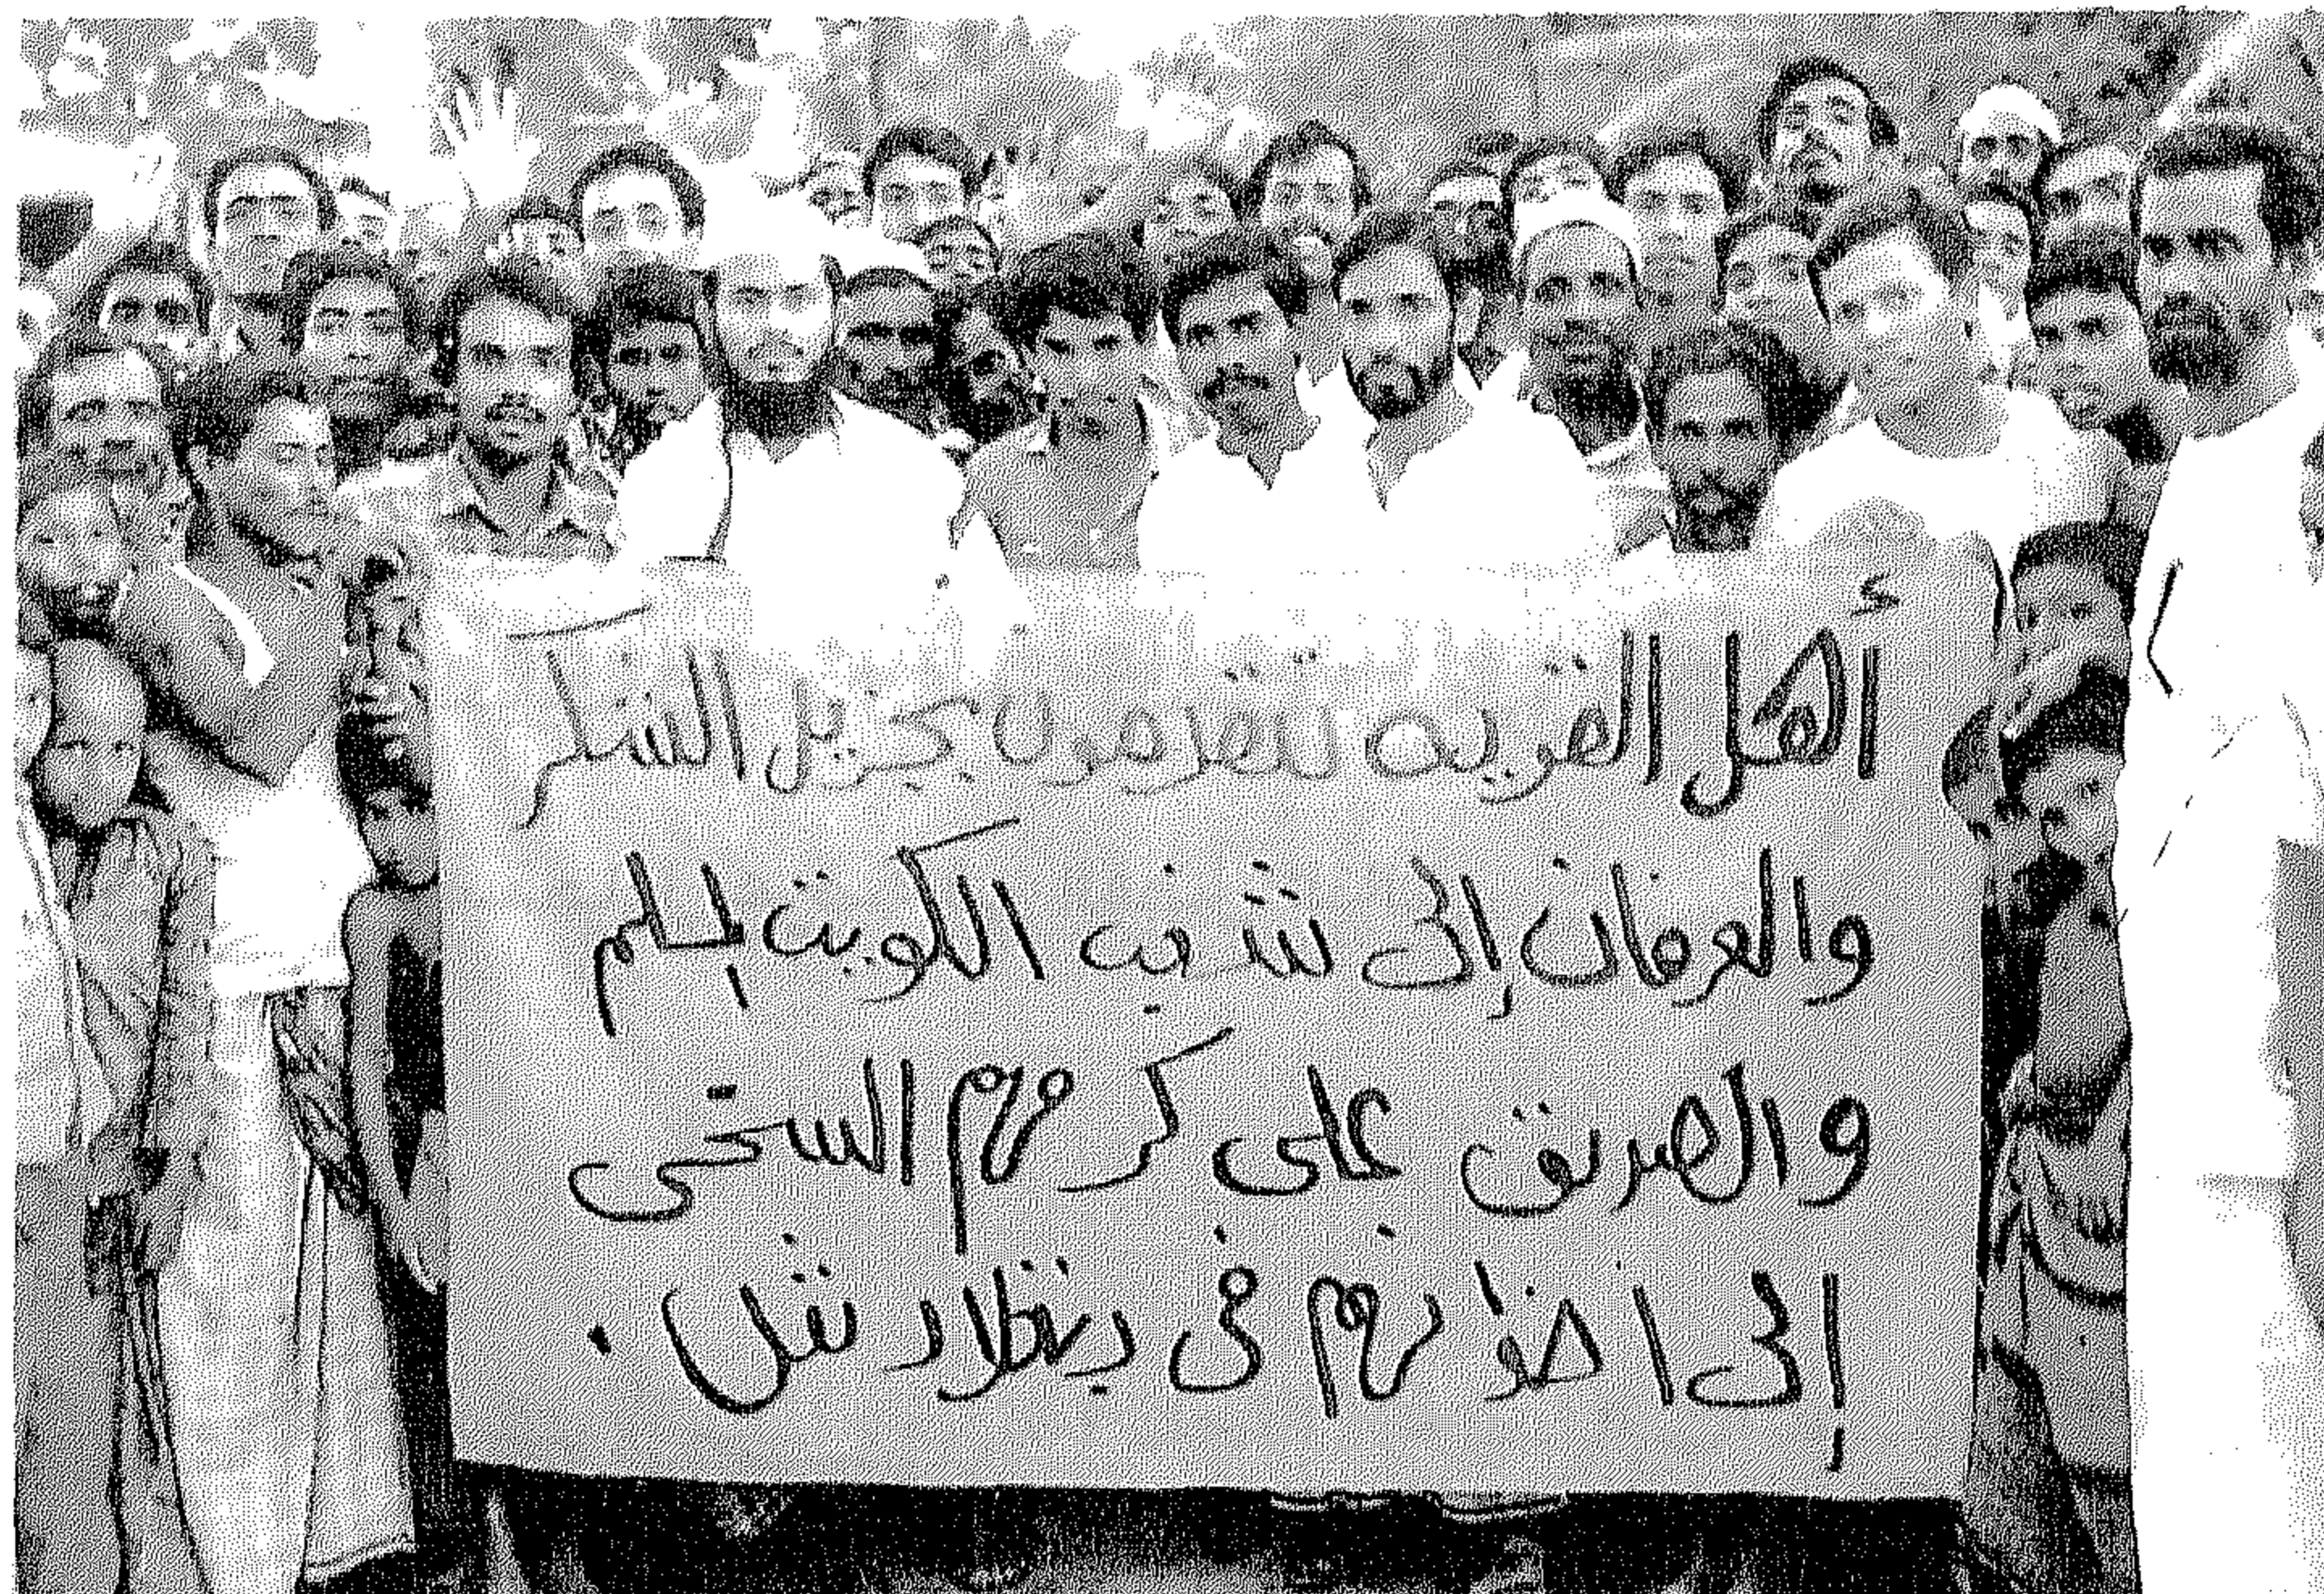 أهل القرية تتقدمون بجزيل الشكر
والعرفان إلى شعب الكويت المسلم
والصديق على كرمهم السخى
إلى اخوانهم فى بنغلاديش .